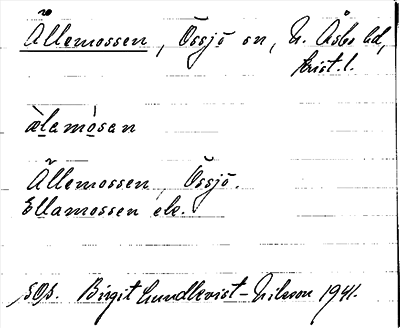 Ällemossen, Össjö sn, N. Åsbo hd,
Krist. l.
ælamosan
Ällemossen, Össjö.
Ellamossen ek.
SOS. Birgit Lundkvist-Nilsson 1941.